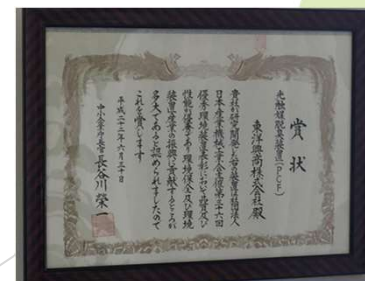 賞状
光触媒脱臭装置(PCF)
東洋興商株式会社殿
貴社の研究開発した右の装置は社団法人
日本産業機械工業会主催第三十六回
優秀環境装置表彰において品質及び
性能が優秀であり環境保全及び環境
装置産業の振興に貢献するところが
多大であると認められましたので
これを賞します
平成二十二年六月三十日
中小企業庁長官 長谷川榮一